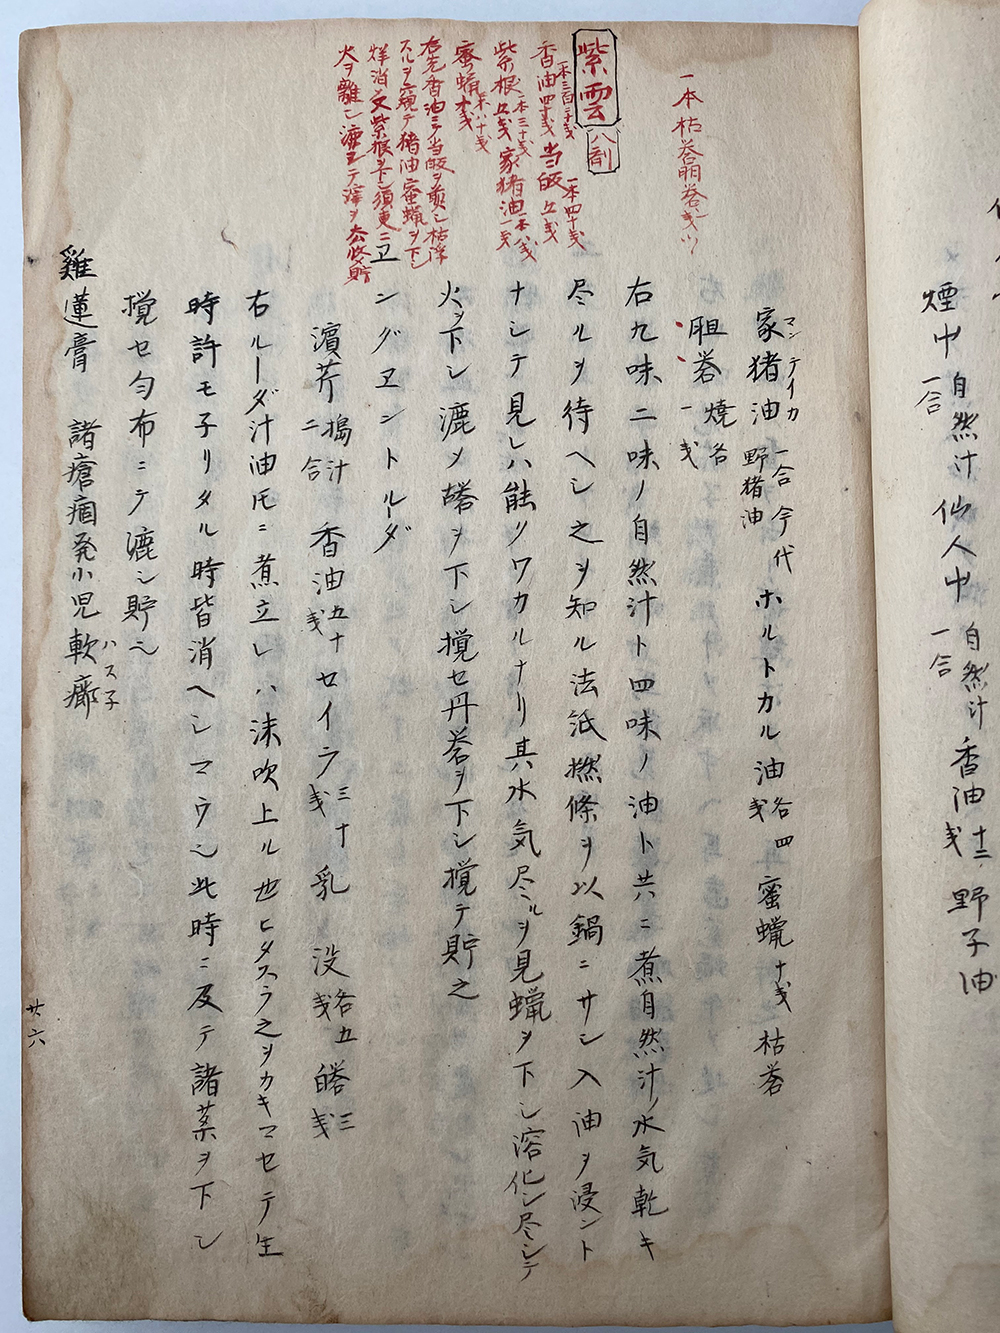 煙中 一合 自然汁 仙人中 一合 自然汁 香油 十二戔 野子油
一本枯礬明礬戔ツ
紫雲 八剤
香油四十戔 一本三百二十戔 当皈五戔 一本四十戔
紫根五戔 一本三十戔 家猪油一戔 一本八戔
蜜蝋十戔 一本八十戔
右先香油ニテ当皈ヲ煎シ枯浮
スルヲ窺テ猪油蜜蝋ヲ下シ
烊消又紫根ヲ下シ須臾ニ
火ヲ離シ漉シテ滓ヲ去收貯
家猪油 マンテイカ 一合今代野猪油 ホルトカル油 各四戔 蜜蝋十戔 枯礬
胆礬 焼各一戔
右九味二味ノ自然汁ト四味ノ油ト共ニ煮自然汁ノ水気乾キ
尽ルヲ待ヘシ之ヲ知ル法紙撚條ヲ以鍋ニサシ入油ヲ浸ント
ナシテ見レハ能クワカルナリ其水気尽ルヲ見蝋ヲ下シ溶化シ尽シテ
火ヲ下シ漉メ䓁ヲ下シ攪セ丹礬ヲ下シ攪テ貯之
ヱングヱントルーダ
濱芹 搗汁二合 香油 五十戔 セイラ 三十戔 乳 没 各五戔 䓁 三戔
右ルーダ汁油モニ煮立レハ沫吹上ル也ヒタスラ之ヲカキマセテ生
時許モ子リタル時皆消ヘシマウシ此時ニ及テ諸薬ヲ下シ
攪セ匀布ニテ漉シ貯ル
雞蓮膏 諸瘡痼発小児軟癤 ハス子
廿六